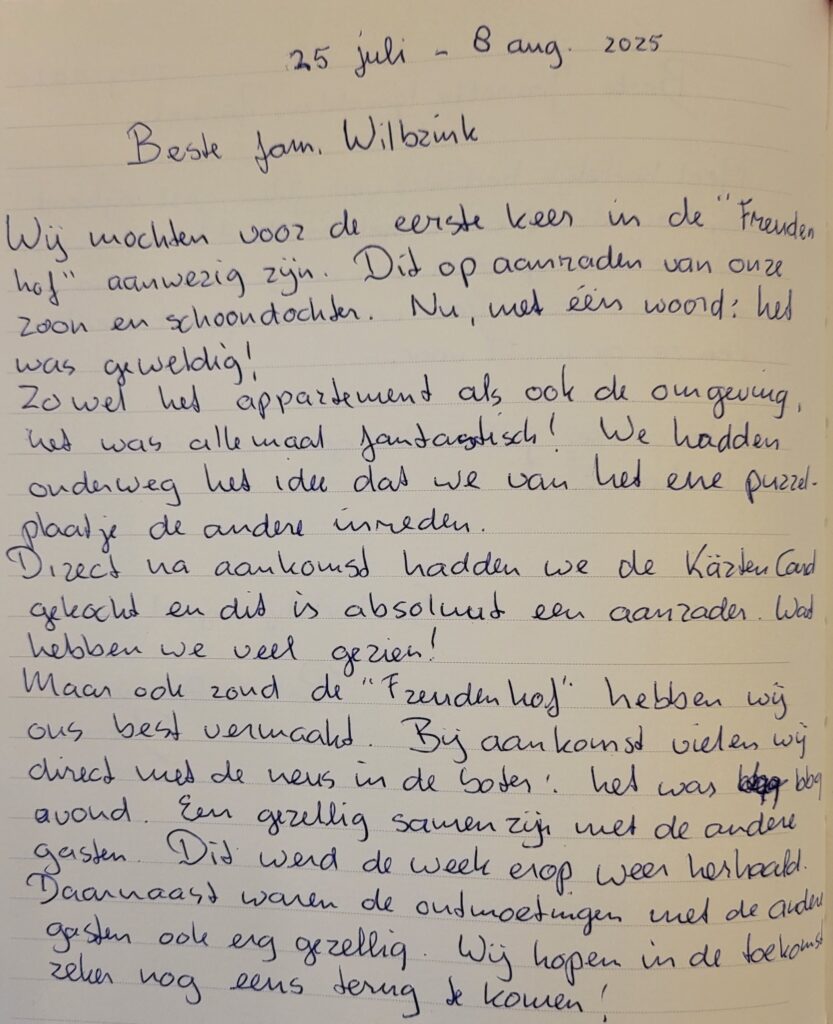 25 juli - 8 aug. 2025
Beste fam. Wilbrink
Wij mochten voor de eerste keer in de "Freuden
hof" aanwezig zijn. Dit op aanraden van onze
zoon en schoondochter. Nu, met één woord: het
was geweldig!
Zowel het appartement als ook de omgeving,
het was allemaal fantastisch! We hadden
onderweg het idee dat we van het ene puzzel-
plaatje de andere inreden.
Direct na aankomst hadden we de Kärnten Card
gekocht en dit is absoluut een aanrader. Wat
hebben we veel gezien!
Maar ook rond de "Freudenhof" hebben wij
ons best vermaakt. Bij aankomst vielen wij
direct met de neus in de boter: het was bbq
avond. Een gezellig samenzijn met de andere
gasten. Dit werd de week erop weer herhaald.
Daarnaast waren de ontmoetingen met de andere
gasten ook erg gezellig. Wij hopen in de toekomst
zeker nog eens terug te komen!